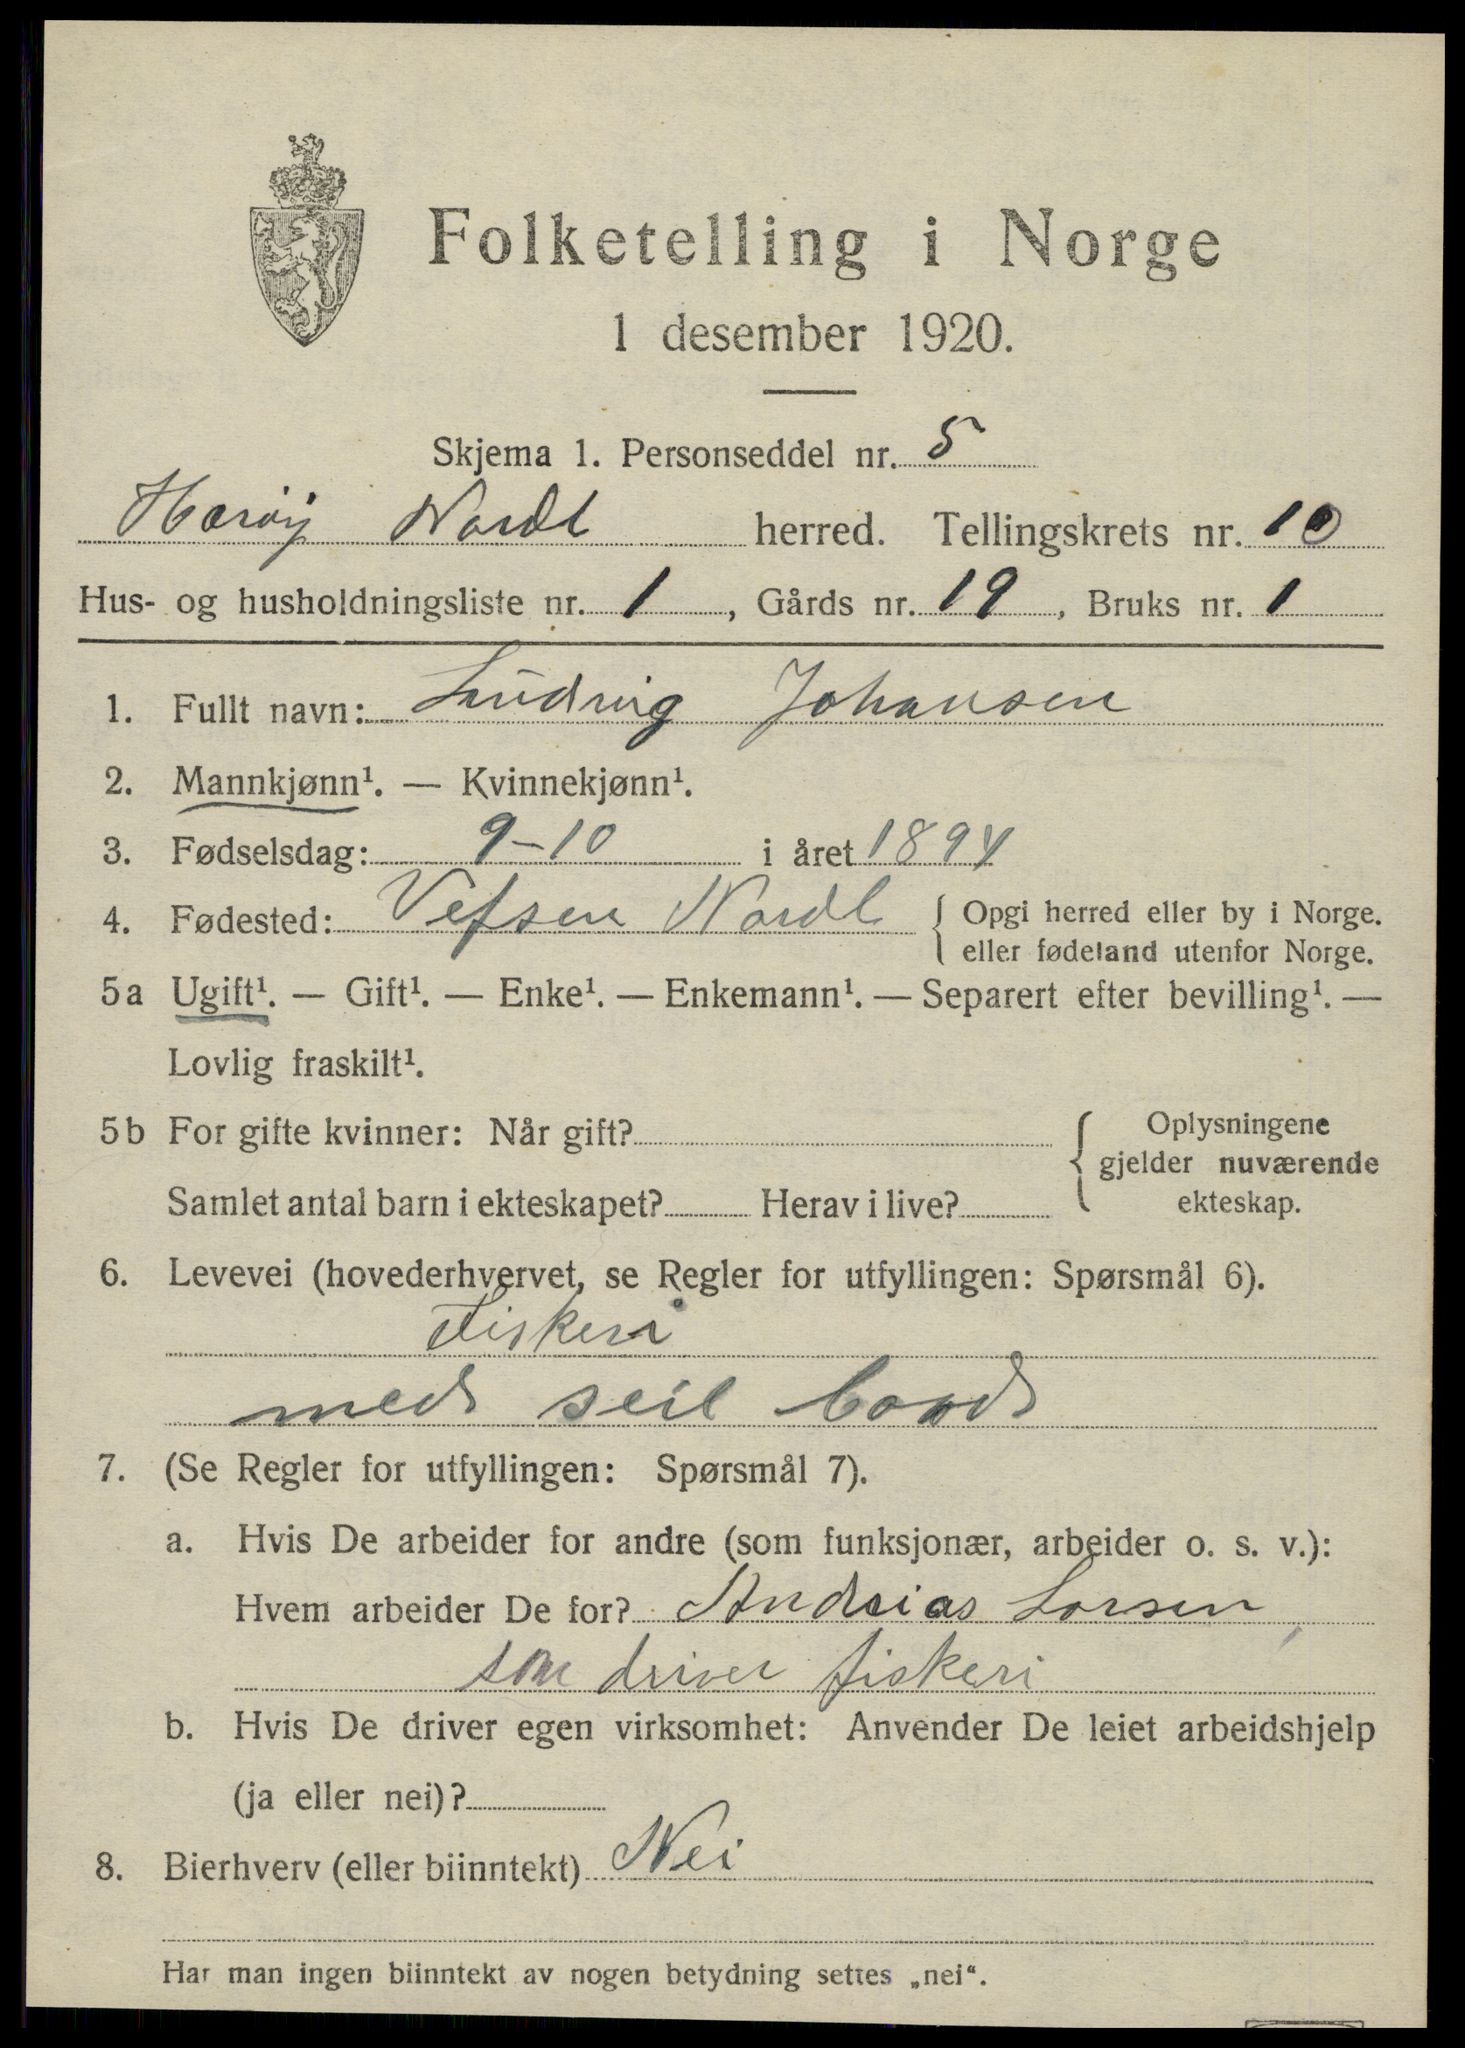 Folketelling i Norge
1 desember 1920.
Skjema 1. Personseddel nr. 5
Herøy Nordl herred. Tellingskrets nr. 10
Hus- og husholdningsliste nr. 1, Gårds nr. 19, Bruks nr. 1
1. Fullt navn: Ludvig Johansen
2. Mannkjønn¹. — Kvinnekjønn¹.
3. Fødselsdag: 9-10 i året 1894
4. Fødested: Vefsen Nordl { Opgi herred eller by i Norge.
eller fødeland utenfor Norge.
5a Ugift¹. — Gift¹. — Enke¹. — Enkemann¹. — Separert efter bevilling¹. —
Lovlig fraskilt¹.
5b For gifte kvinner: Når gift?
Samlet antal barn i ekteskapet? Herav i live?
{ Oplysningene
gjelder nuværende
ekteskap.
6. Levevei (hovederhvervet, se Regler for utfyllingen: Spørsmål 6).
Fiskeri
med seil baad
7. (Se Regler for utfyllingen: Spørsmål 7).
a. Hvis De arbeider for andre (som funksjonær, arbeider o. s. v.):
Hvem arbeider De for? Andreias Larsen,
som driver fiskeri
b. Hvis De driver egen virksomhet: Anvender De leiet arbeidshjelp
(ja eller nei)?
8. Bierhverv (eller biinntekt) Nei
Har man ingen biinntekt av nogen betydning settes „nei“.